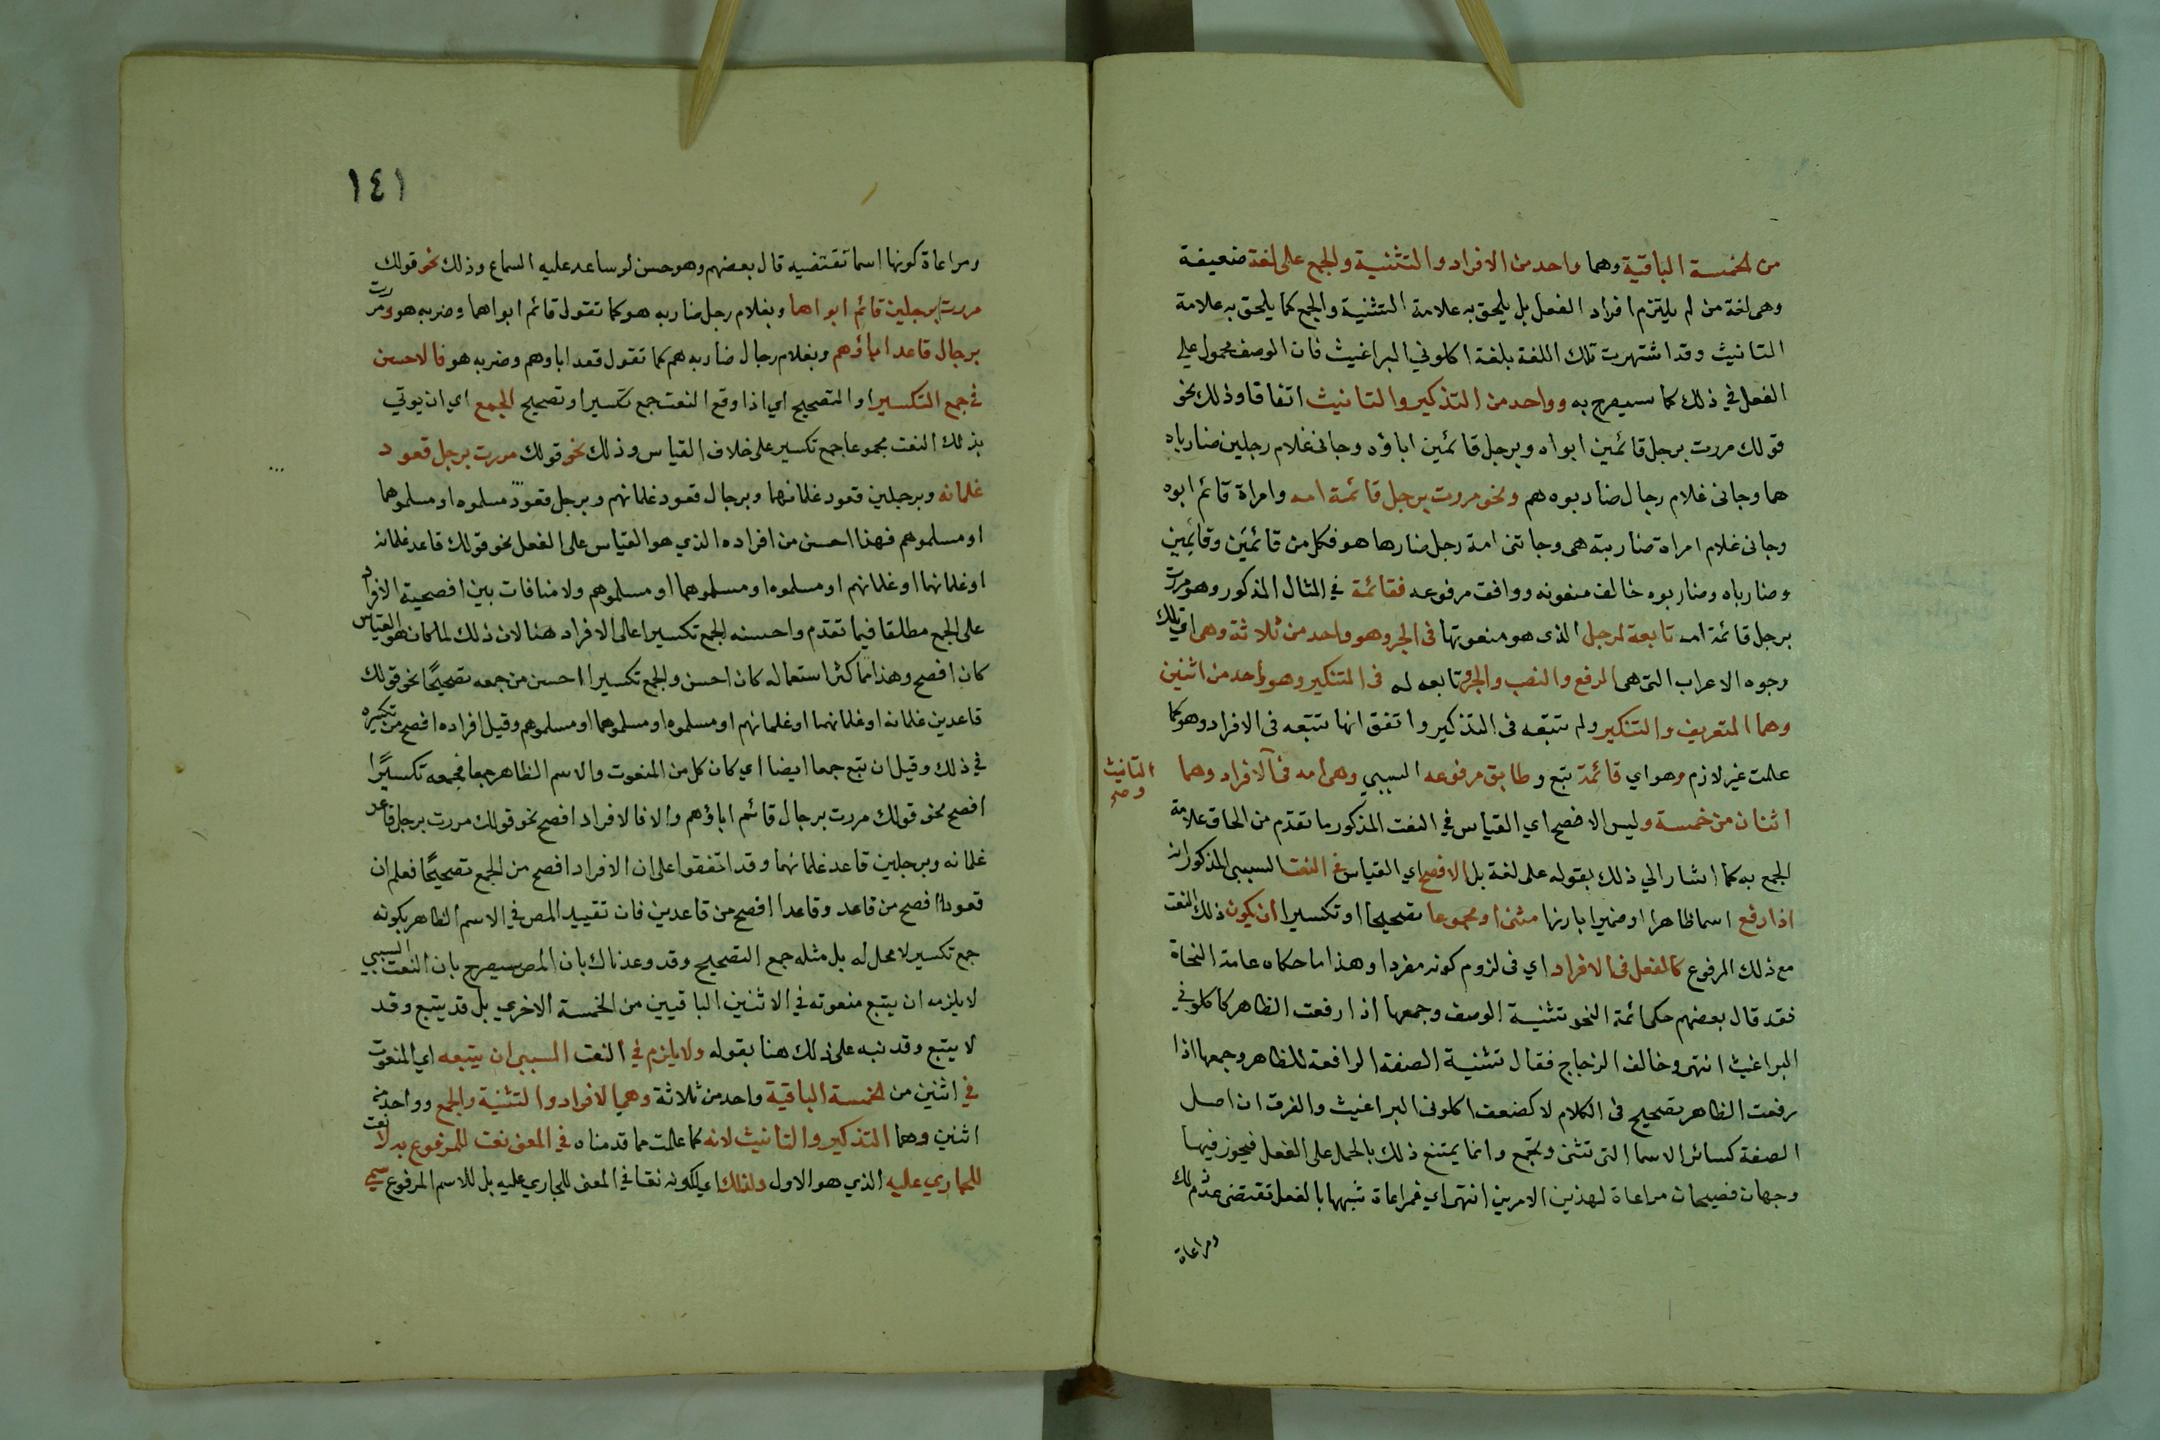 من الخمسة الباقية وهما واحد من الافراد والتثنية والجمع على لغة ضعيفة
وهى لغة من لم يلتزم افراد الفعل بل يلحق به علامة التثنية والجمع كما يلحق به علامة
التانيث وقد اشتهرت تلك اللغة بلغة اكلوني البراغيث فان الوصف محمول على
الفعل في ذلك كما سيصرح به وواحد من التذكير والتانيث اتفاقا وذلك نحو
قولك مررت برجل قائمين ابواه وبرجل قائمين اباؤه وجانى غلام رجلين ضارباه
هما وجانى غلام رجال ضاربوه هم ونحو مررت برجل قائمة امه وامراة قائم ابوه
وجانى غلام امراة ضاربته هى وجاتنى امة رجل ضاربها هو فكل من قائمَين وقائمِين
وضارباه وضاربوه خالف منعوته ووافق مرفوعه فقائمة في المثال المذكور وهو مررت
برجل قائمة امه تابعة لرجل الذى هو منعوتها فى الجر وهو واحد من ثلاثة وهى اي تلك
وجوه الاعراب التى هى الرفع والنصب والجر وتابعه له فى التنكير وهو واحد من اثنين
وهما التعريف والتنكير ولم تتبعه فى التذكير واتفق انها تتبعه فى الافراد وهو كما
علمت غير لازم وهو اي قائمة تتبع وطابق مرفوعه السببي وهى امه فى الافراد وهما
التانيث
و صح
اثنان من خمسة وليس الافصح اي القياس في النعت المذكور ما تقدم من الحاق علامة
الجمع به كما اشار الي ذلك بقوله على لغة بل الافصح اي القياس في النعت السببى المذكور انه
اذا رفع اسما ظاهرا او ضميرا بارزا مثنى او مجموعا تصحيحا او تكسيرا ان يكون ذلك النعت
مع ذلك المرفوع كالفعل فى الافراد اي فى لزوم كونه مفردا وهذا ما حكاه عامة النحاة
فقد قال بعضهم حكى ائمة النحو تثنية الوصف وجمعها اذا رفعت الظاهر كاكلوني
البراغيث انتهى وخالف الزجاج فقال تثنية الصفة الرافعة للظاهر وجمعها اذا
رفعت الظاهر تصحيح فى الكلام لا كضعف اكلونى البراغيث والفرق ان اصل
الصفة كسائر الاسما التى تثنى وتجمع وانما يمتنع ذلك بالحمل على الفعل فيجوز فيها
وجهان فصيحان مراعاة لهذين الامرين انتهى اي فمراعاة شبهها بالفعل تقتضى عدم ذلك
ومراعاة
١٤١
ومراعاة كونها اسما تقتضيه قال بعضهم وهو حسن لو ساعد عليه السماع وذلك نحو قولك
مررت برجلين قائم ابواها وبغلام رجل ضاربه هو كما تقول قائم ابواها وضربه هو ومررت
برجال قاعد اباؤهم وبغلام رجال ضاربه هم كما تقول قعد اباوهم وضربه هو فالاحسن
في جمع التكسير او التصحيح اي اذا وقع النعت جمع تكسير او تصحيح الجمع اي ان يوتي
بذلك النعت مجموعا جمع تكسير على خلاف القياس وذلك نحو قولك مررت برجل قعود
غلمانه وبرجلين قعود غلمانهما وبرجال قعود غلمانهم وبرجل قعود مسلموه او مسلموهما
او مسلموهم فهذا احسن من افراده الذي هو القياس على الفعل نحو قولك قاعد غلمانه
او غلمانهما او غلمانهم او مسلموه او مسلموهما او مسلموهم ولا منافات بين افصحية الافراد
على الجمع مطلقا فيما تقدم واحسنه الجمع تكسيرا على الافراد هنا لان ذلك لما كان هو القياس
كان افصح وهذا لما كثر استعماله كان احسن والجمع تكسيرا احسن من جمعه تصحيحًا نحو قولك
قاعدين غلمانه او غلمانهما او غلمانهم او مسلموه او مسلموهما او مسلموهم وقيل افراده افصح من تكسيره
في ذلك وقيل ان تبع جمعا ايضا اي كان كل من المنعوت والاسم الظاهر جمعا فجمعه تكسيرًا
افصح نحو قولك مررت برجال قائم اباؤهم والا فالافراد افصح نحو قولك مررت برجل قاعد
غلمانه وبرجلين قاعد غلمانهما وقد اتفقوا على ان الافراد افصح من الجمع تصحيحًا فعلم ان
قعودا افصح من قاعد وقاعدا افصح من قاعدين فان تقييد المص في الاسم الظاهر بكونه
جمع تكسير لا محل له بل مثله جمع التصحيح وقد وعدناك بان المص سيصرح بان النعت السببي
لا يلزمه ان يتبع منعوته في الاثنين الباقيين من الخمسة الاخري بل قد يتبع وقد
لا يتبع وقد نبه على ذلك هنا بقوله ولا يلزم في النعت السببى ان يتبعه اي المنعوت
في اثنين من الخمسة الباقية واحد من ثلاثة وهى الافراد والتثنية والجمع وواحد من
اثنين وهما التذكير والتانيث لانه كما علمت مما قدمناه في المعنى نعت للمرفوع بعد لا نعت
للجاري عليه الذي هو الاول ولذلك اي لكونه نعتا في المعنى للجاري عليه بل للاسم المرفوع سمي